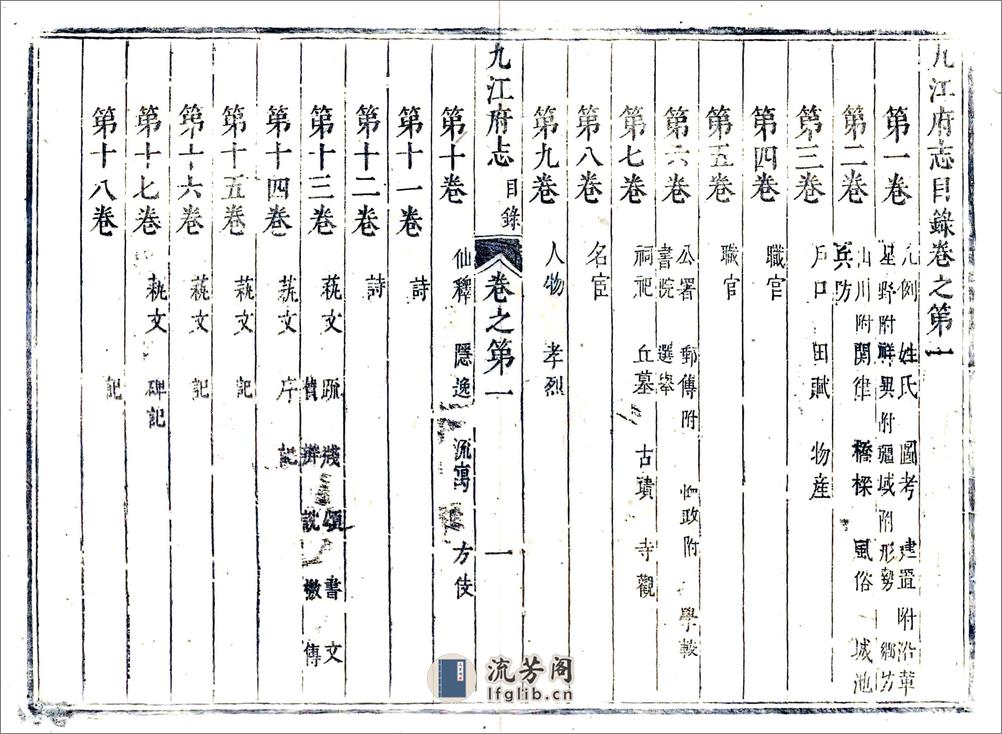 九江府志目錄卷之第一
第一卷
凡例 姓氏 圖考 建置 附沿革
星野 附祥異 附疆域 附形勢 鄉坊
第二卷
山川 附關津 橋樑 風俗 城池
兵防
第三卷
戶口 田賦 物産
第四卷
職官
第五卷
職官
第六卷
公署 郵傳附 恤政附 學校
書院 選舉
第七卷
祠祀 丘墓 古蹟 寺觀
第八卷
名宦
第九卷
人物 孝烈
九江府志 目錄 卷之第一 一
第十卷
仙釋 隱逸 流寓 方伎
第十一卷
詩
第十二卷
詩
第十三卷
蓺文 疏 箴 頌 書 文
辨 說 檄 傳
第十四卷
蓺文 序 記
第十五卷
蓺文 記
第十六卷
蓺文 記
第十七卷
蓺文 碑記
第十八卷
記
流芳阁
lfglib.cn